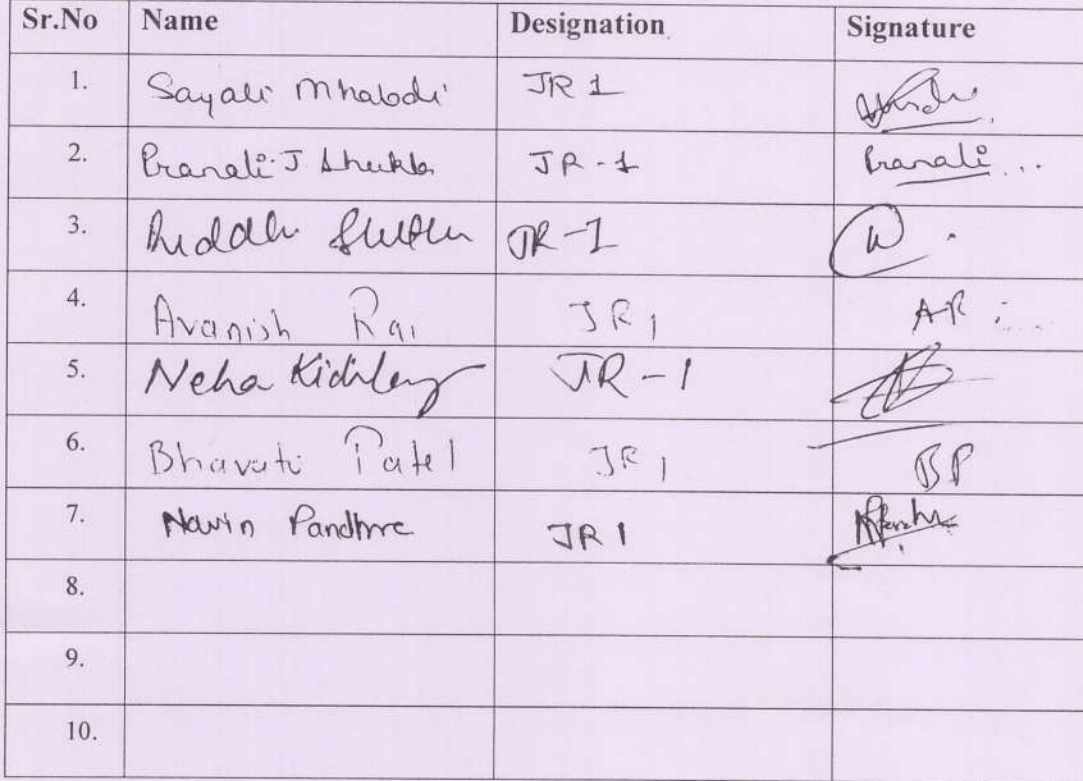 Sr.No Name Designation Signature
1. Sayali Mhabdi JR 1
2. Pranali J. Shukla JR-1 Pranali
3. JR-1
4. Avanish Rai JR1 AR
5. Neha JR-1
6. Bhavati Patel JR1 BP
7. Navin Pandhre JR1
8.
9.
10.